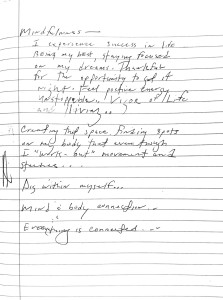 Mindfulness —
I experience success in life
being my best, staying focused
on my dreams. Thankful
for the opportunity to get it
right. Feel positive energy
Unstoppable. Vision of Life
and living...
Creating that space finding spots
on my body that even though
I "work-out" movement and
stretches....
Dig within myself...
Mind & body connection...
Everything is connected...